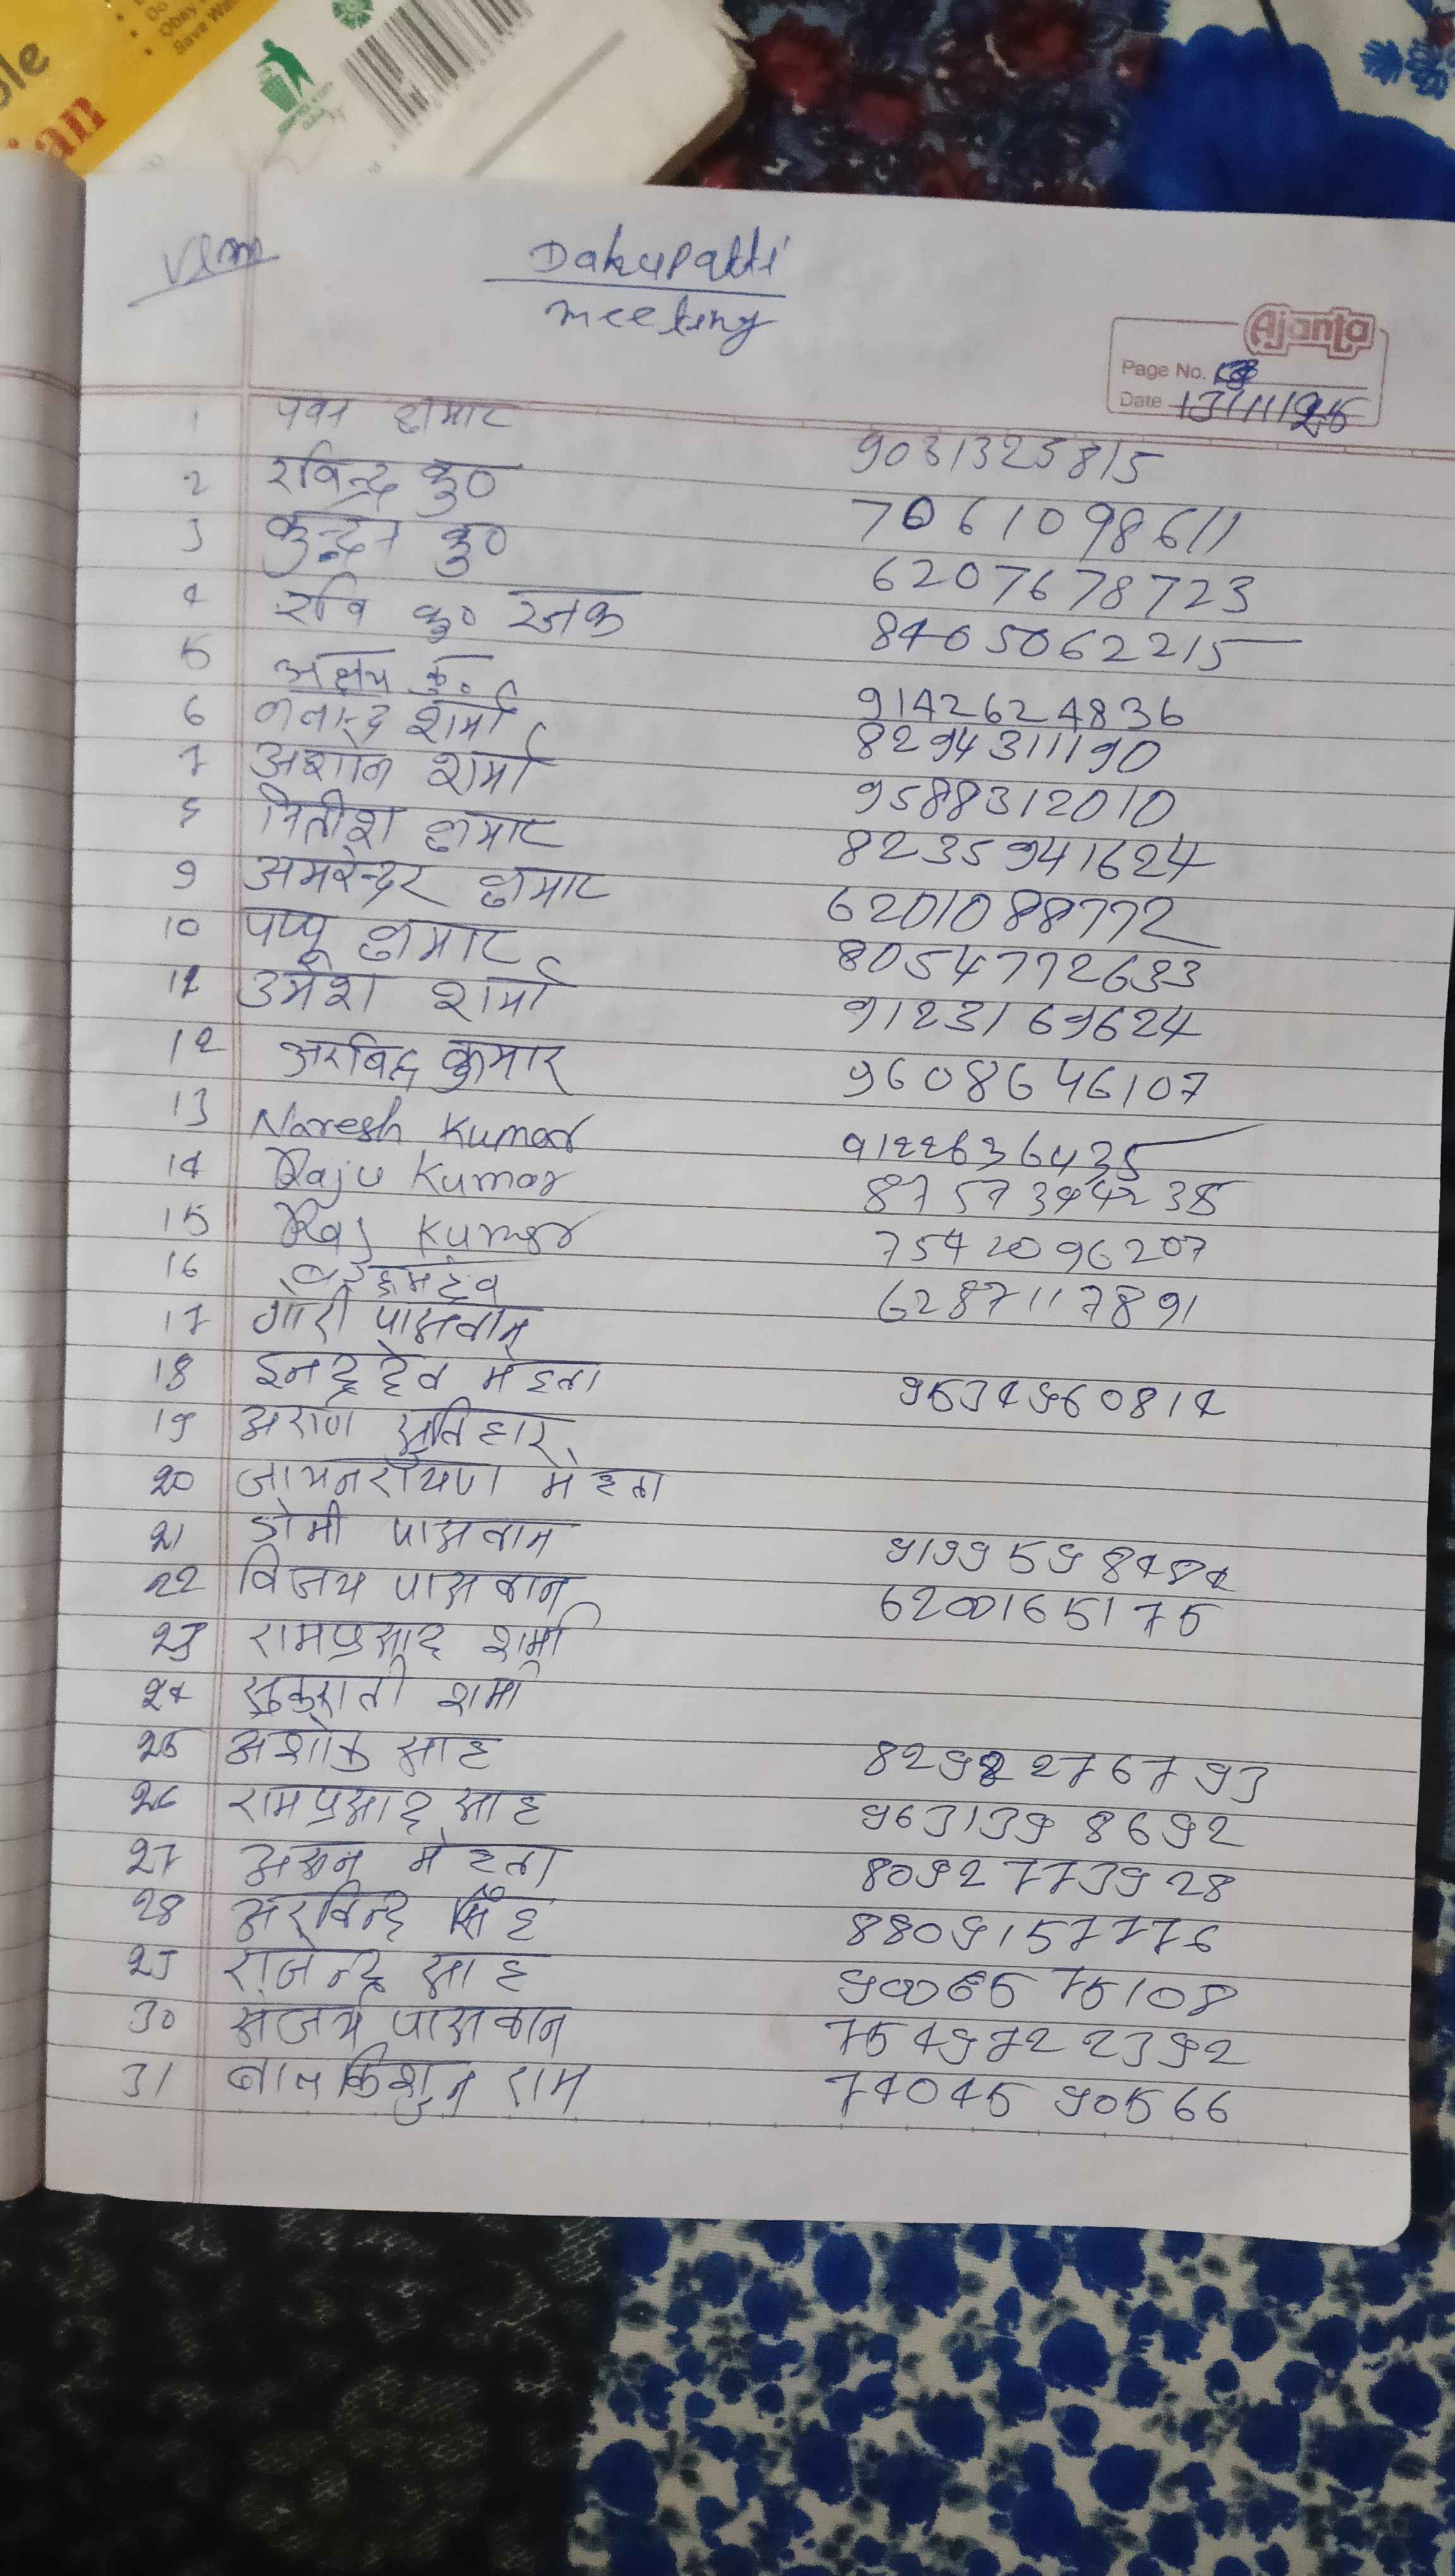 Dakupatti
meeting
Ajanta
Page No.
Date 13/11/25
1 पवन कुमार 9031325815
2 रविन्द्र कु० 7061098611
3 कुन्दन कु० 6207678723
4 रवि कु० रजक 8405062215
5 अक्षय कु. 9142624836
6 शर्मा 8294311190
7 अशोक शर्मा 9588312010
8 नितीश कुमार 8235941624
9 अमरेन्द्र कुमार 6201088772
10 पप्पू कुमार 8054772633
11 उमेश शर्मा 9123169624
12 अरविन्द्र कुमार 9608646107
13 Naresh Kumar 9122636435
14 Raju Kumar
15 Raj Kumar 7542096207
16 6287117891
17 गोरी पासवान
18 इनद्रदेव मेहता 9534960814
19
20 जायनरायण मेहता
21 डोमी पासवान 9199598484
22 विजय पासवान 6200165175
23 रामप्रसाद शर्मा
24 शर्मा
25 अशोक साह
26 रामप्रसाद साह 9631398692
27 मेहता 8092773928
28 अरविन्द सिंह 8809157776
29 राजेन्द्र साह 9006575108
30 संजय पासवान 7549722392
31 बालकिशुन राम 7404590566